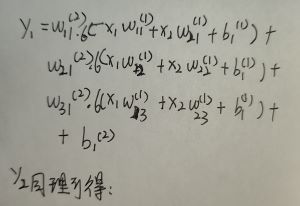 y₁ = w₁₁⁽²⁾·6(x₁w₁₁⁽¹⁾+x₂w₂₁⁽¹⁾+b₁⁽¹⁾)+
w₂₁⁽²⁾·6(x₁w₁₂⁽¹⁾+x₂w₂₂⁽¹⁾+b₁⁽¹⁾)+
w₃₁⁽²⁾·6(x₁w₁₃⁽¹⁾+x₂w₂₃⁽¹⁾+b₁⁽¹⁾)+
+ b₁⁽²⁾
y₂同理可得: